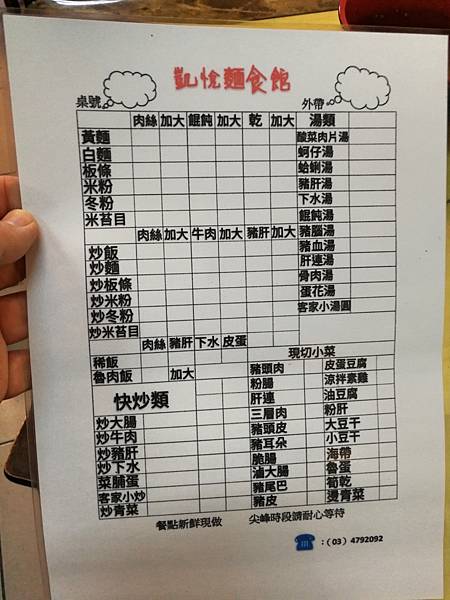 凱悅麵食館
桌號 外帶
肉絲 加大 餛飩 加大 乾 加大 湯類
黃麵 酸菜肉片湯
白麵 蚵仔湯
板條 蛤蜊湯
米粉 豬肝湯
冬粉 下水湯
米苔目 餛飩湯
肉絲 加大 牛肉 加大 豬肝 加大 豬腦湯
炒飯 豬血湯
炒麵 肝連湯
炒板條 骨肉湯
炒米粉 蛋花湯
炒冬粉 客家小湯圓
炒米苔目
肉絲 豬肝 下水 皮蛋 現切小菜
稀飯 豬頭肉 皮蛋豆腐
魯肉飯 加大 粉腸 涼拌素雞
快炒類 肝連 油豆腐
三層肉 粉肝
炒大腸 豬頭皮 大豆干
炒牛肉 豬耳朵 小豆干
炒豬肝 脆腸 海帶
炒下水 滷大腸 魯蛋
菜脯蛋 豬尾巴 筍乾
客家小炒 豬皮 燙青菜
炒青菜
餐點新鮮現做 尖峰時段請耐心等待
☎:(03)4792092